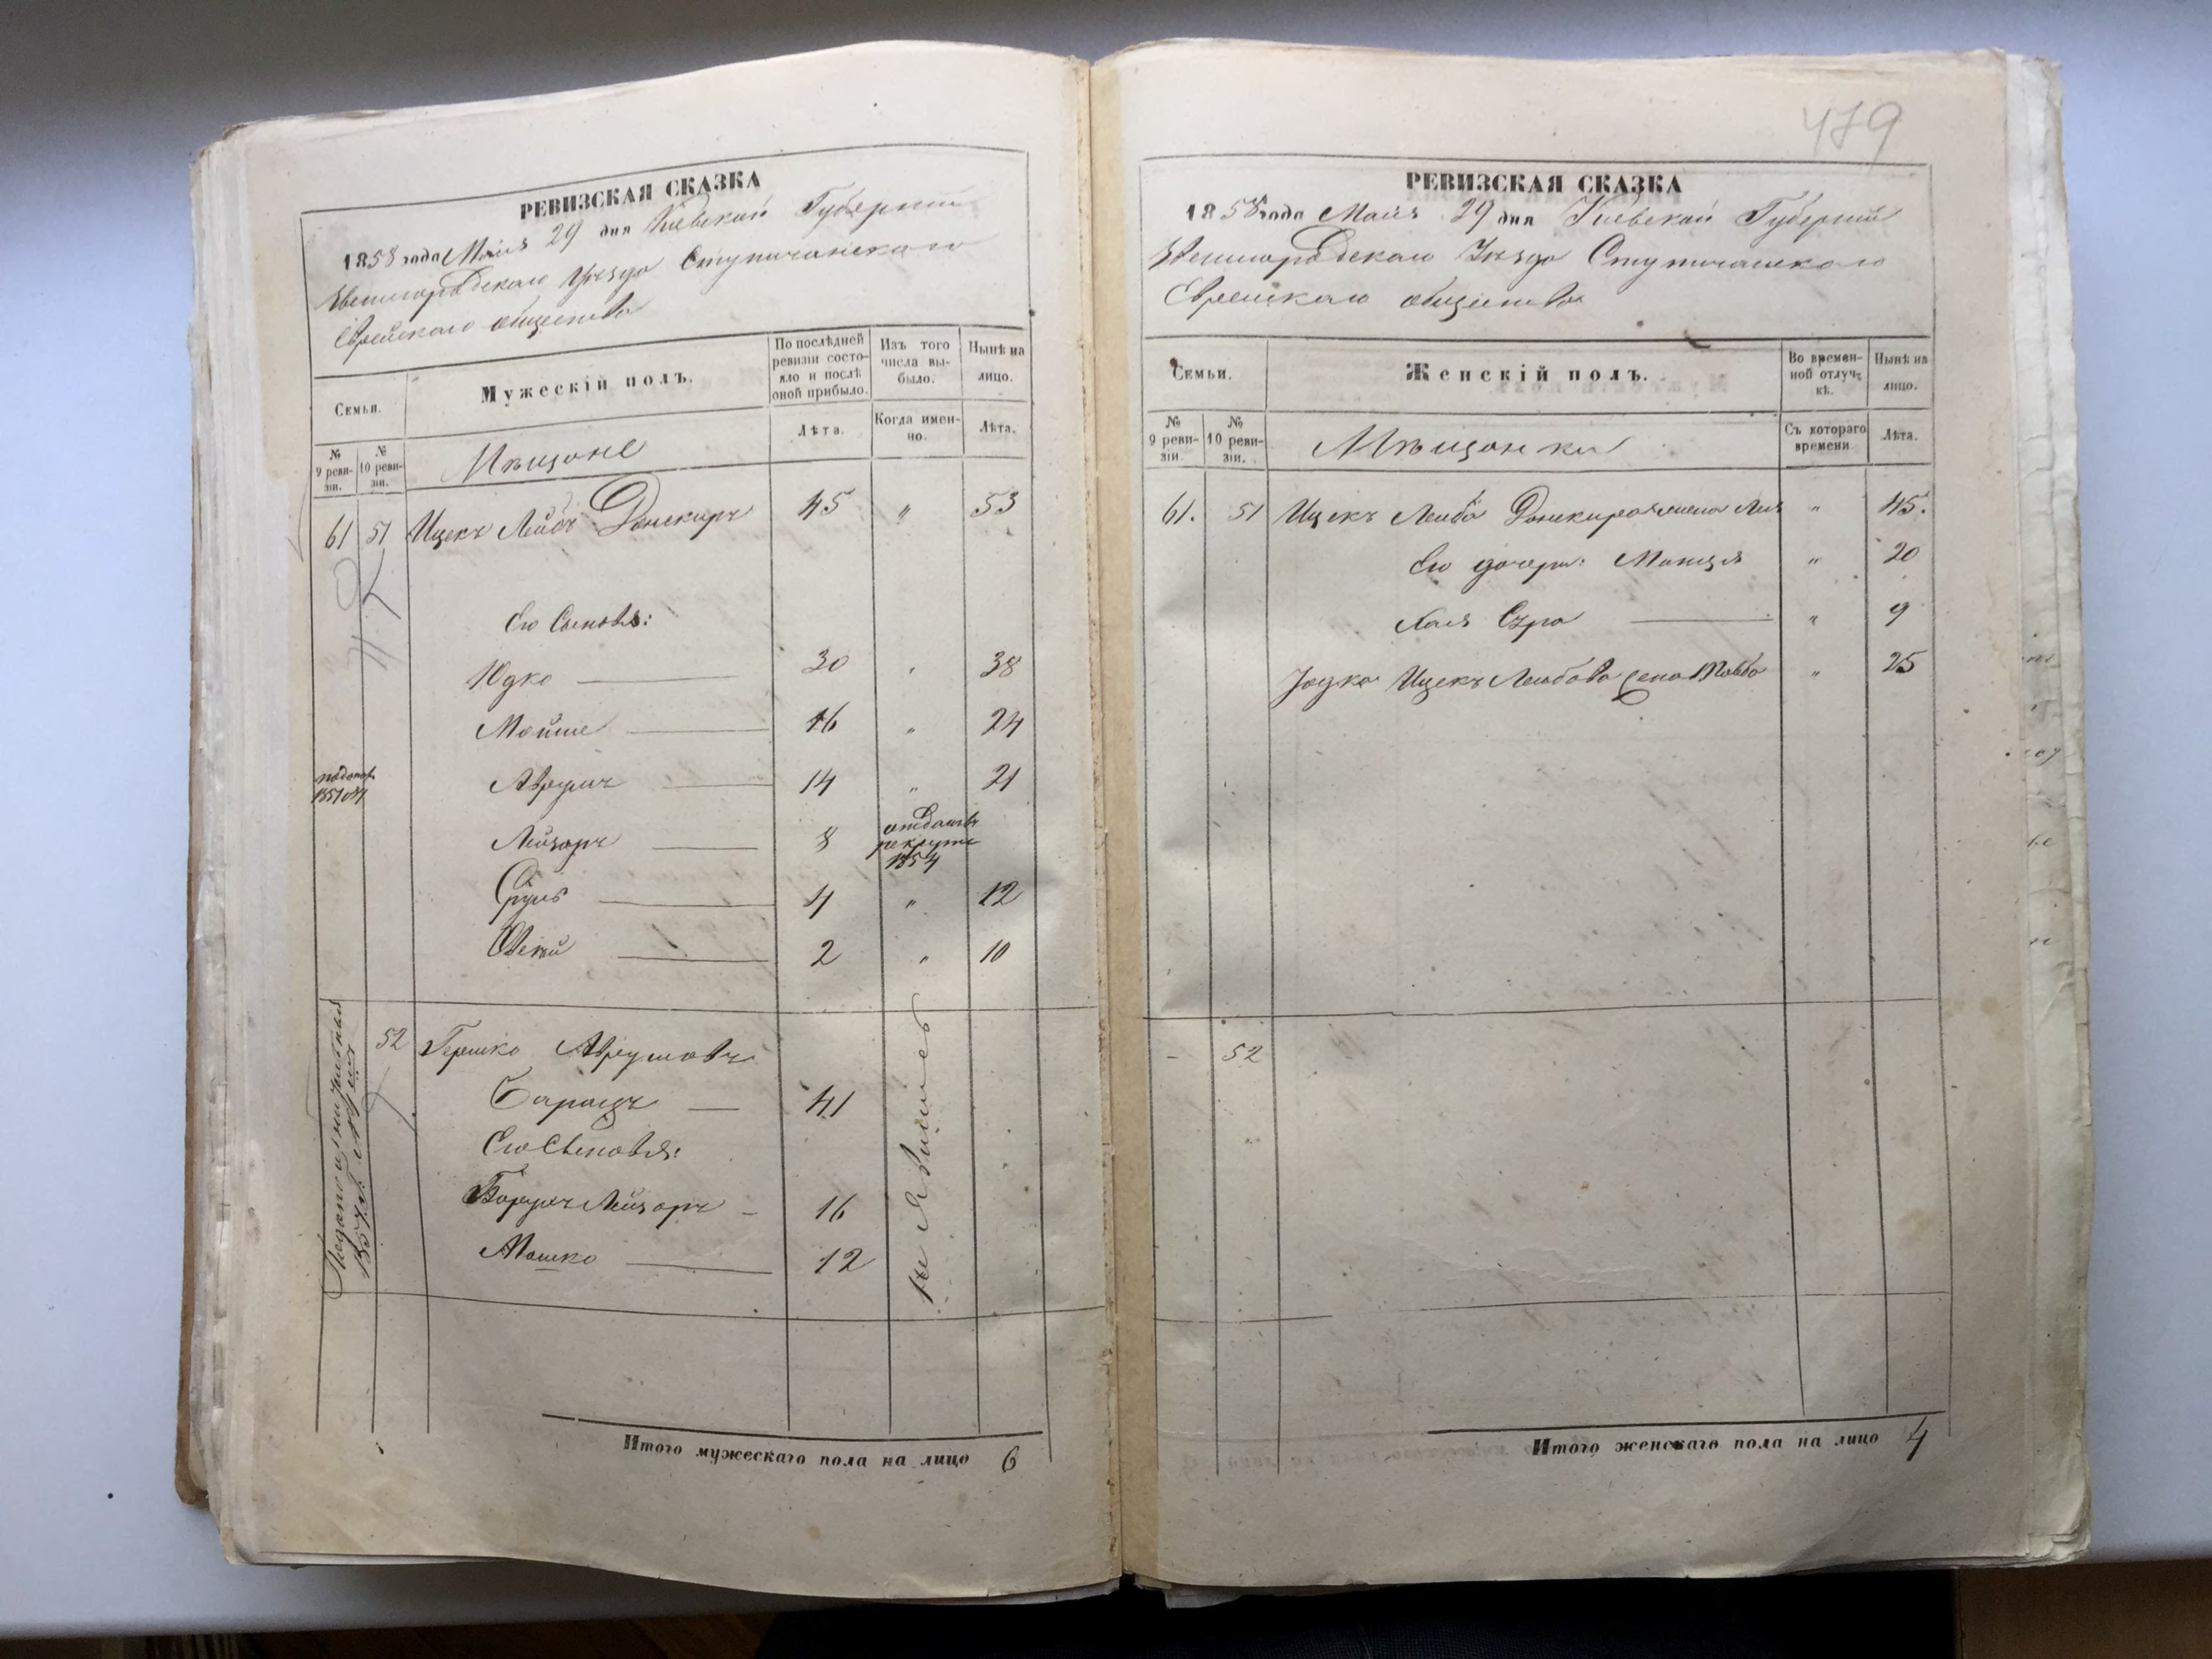 РЕВИЗСКАЯ СКАЗКА
1858 года Маія 29 дня Кіевской Губерніи
Звенигородскаго Уѣзда Стутичанскаго
Еврейскаго общества
Семьи.
Мужескій полъ.
По послѣдней ревизіи состояло и послѣ оной прибыло.
Изъ того числа выбыло.
Нынѣ на лицо.
№ 9 ревизіи.
№ 10 ревизіи.
Мѣщане
Лѣта.
Когда именно.
Лѣта.
61 51 Ицекъ Лейбъ 45 " 53
Его Сыновья:
Юдко 30 " 38
Мойше 16 " 24
1851 Аврумъ 14 " 21
Лейзоръ 8 отданъ въ рекруты 1854
Сруль 4 " 12
2 " 10
52 Гершко Аврумовъ
41
Его Сыновья:
Борухъ Лейзоръ - 16
Мошко 12
не явились
Итого мужескаго пола на лицо 6
479
РЕВИЗСКАЯ СКАЗКА
1858 года Маія 29 дня Кіевской Губерніи
Звенигородскаго Уѣзда Стутичанскаго
Еврейскаго общества
Семьи.
Женскій полъ.
Во временной отлучкѣ.
Нынѣ на лицо.
№ 9 ревизіи.
№ 10 ревизіи.
Мѣщанки
Съ котораго времени
Лѣта.
61. 51 Ицекъ Лейба жена " 45.
Его дочери: " 20
Хая Сура " 9
Юдка Ицекъ Лейбова жена " 25
- 52
Итого женскаго пола на лицо 4